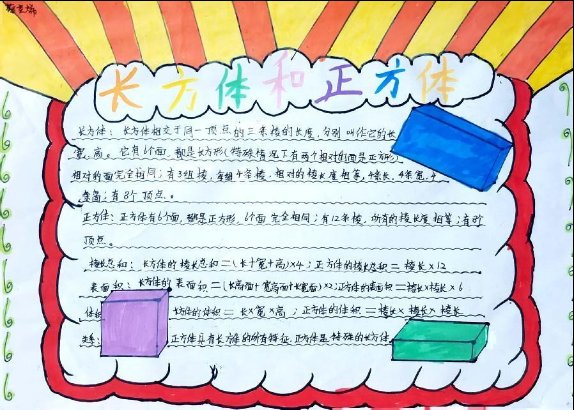 长方体和正方体
长方体：长方体相交于同一顶点的三条棱的长度，分别叫作它的长
宽、高。它有6个面，都是长方形(特殊情况下有两个相对的面是正方形)
相对的面完全相同；有3组棱，每组4条棱，相对的棱长度相等，4条长，4条宽，4
条高；有8个顶点。
正方体：正方体有6个面，都是正方形，6个面完全相同；有12条棱，所有的棱长度相等；有8个
顶点。
棱长总和：长方体的棱长总和=(长+宽+高)×4；正方体的棱长总和=棱长×12
表面积：长方体的表面积=(长高面+宽高面+长宽面)×2；正方体的表面积=棱长×棱长×6
体积 方体的体积=长×宽×高；正方体的体积=棱长×棱长×棱长
关系： 正方体具有长方体的所有特征，正方体是特殊的长方体